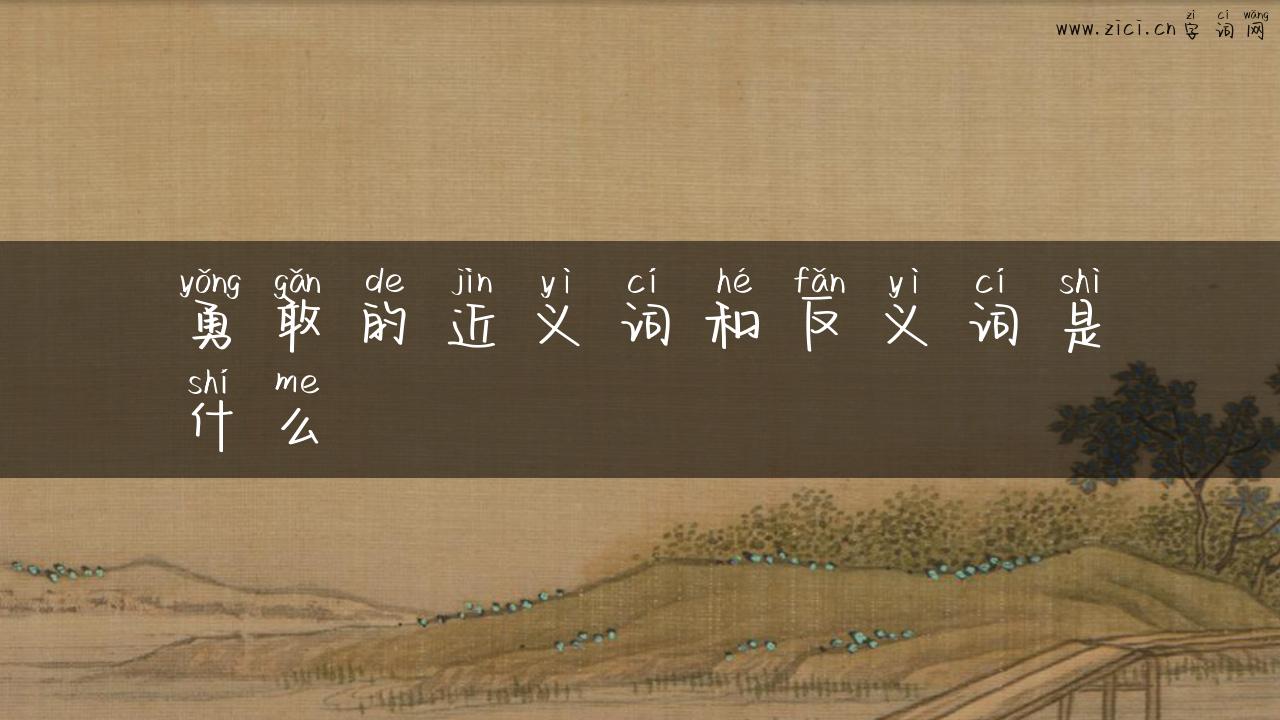 zì cí wǎng
www.zici.cn字词网
yǒng gǎn de jìn yì cí hé fǎn yì cí shì
勇敢的近义词和反义词是
shí me
什么